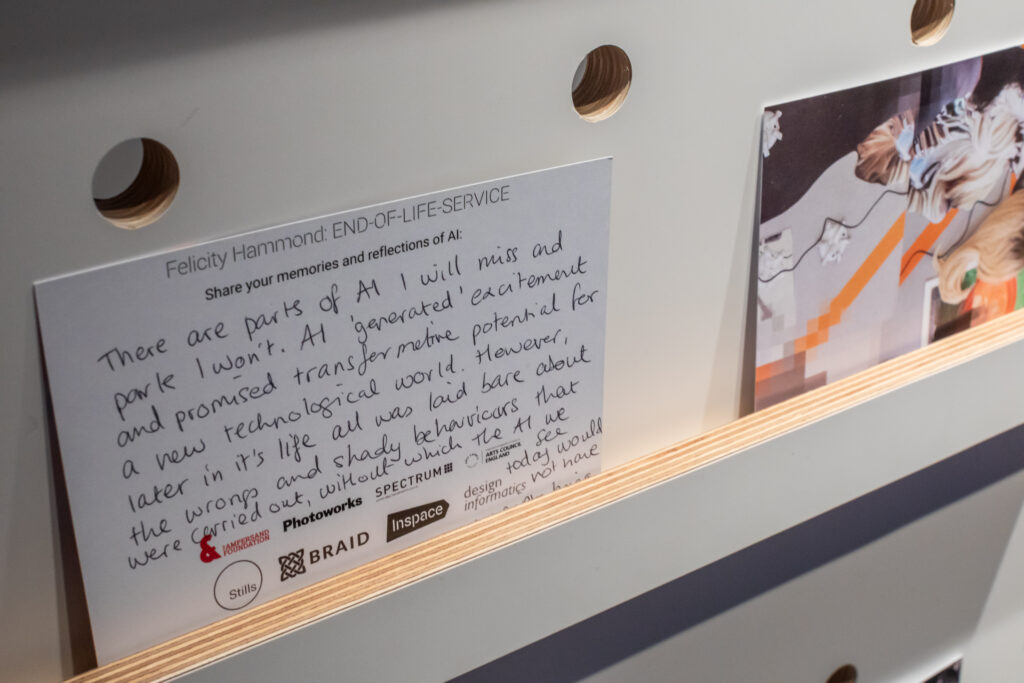 Felicity Hammond: END-OF-LIFE-SERVICE
Share your memories and reflections of AI:
There are parts of AI I will miss and
parts I won't. AI 'generated' excitement
and promised transformative potential for
a new technological world. However,
later in it's life all was laid bare about
the wrongs and shady behaviours that
were carried out, without which the AI we
see
today would
not have
ARTS COUNCIL
ENGLAND
SPECTRUM
Photoworks
design
informatics
Inspace
&
AMPERSAND
FOUNDATION
BRAID
Stills